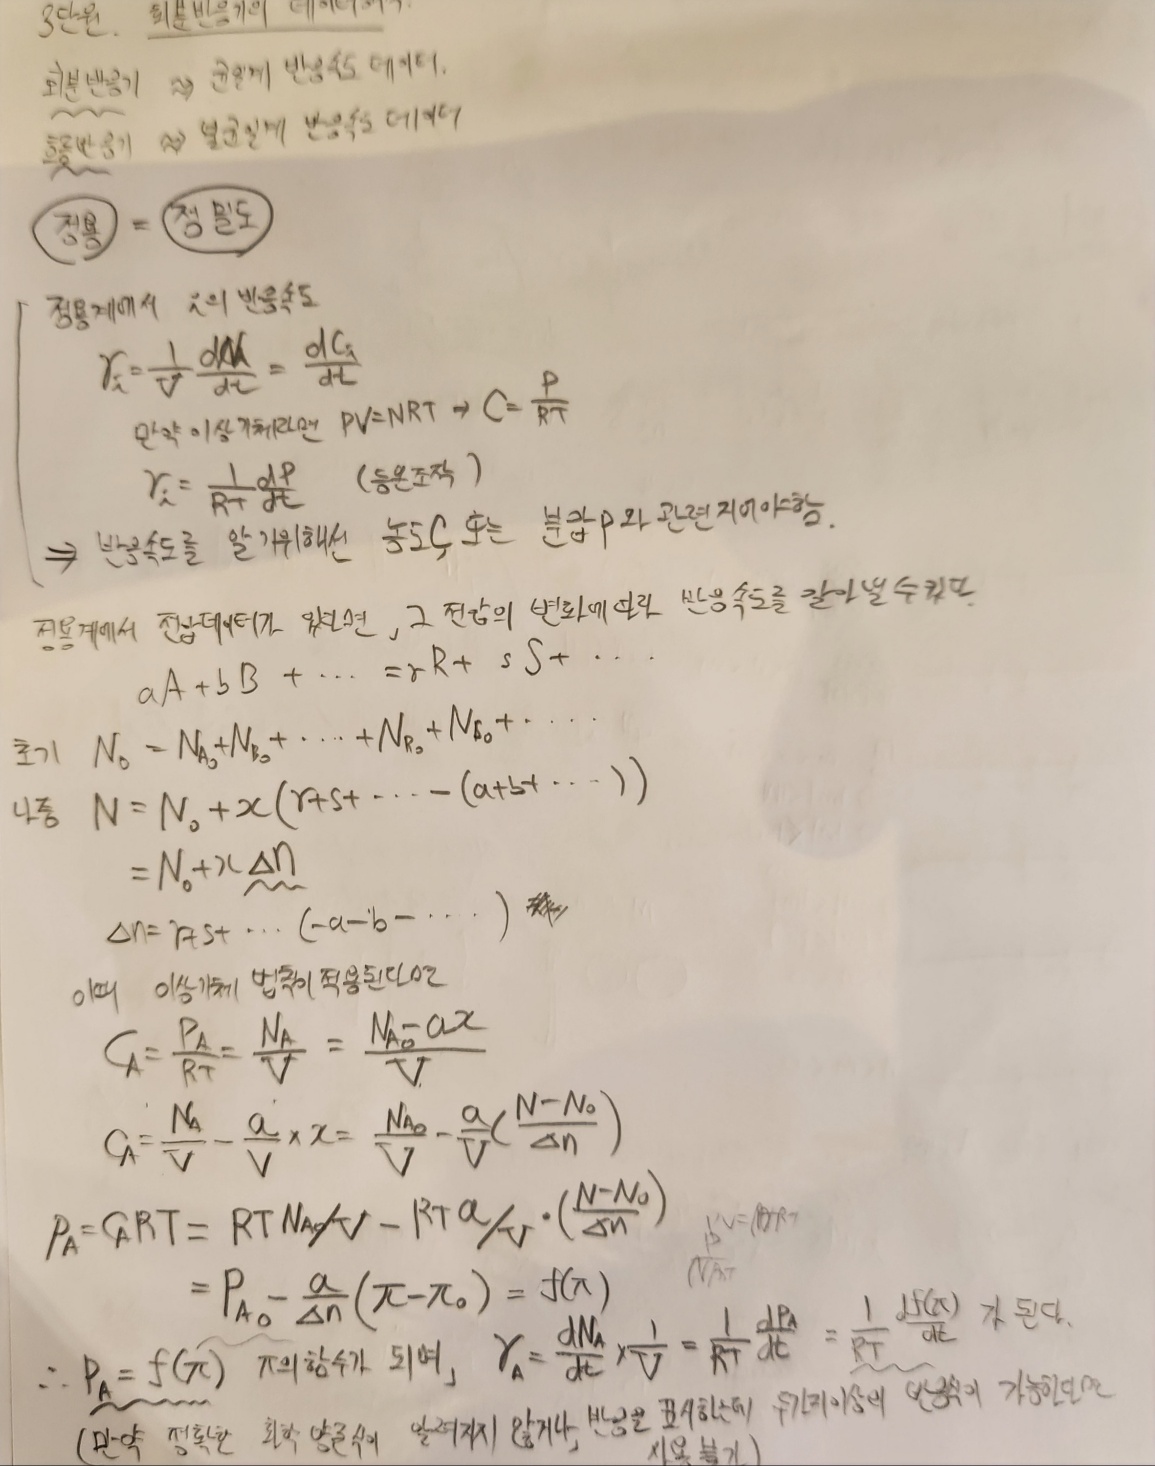 3단원. 회분반응기의 데이터해석.
회분반응기 ⇝ 균일계 반응속도 데이터.
흐름반응기 ⇝ 불균일계 반응속도 데이터
정용 = 정밀도
정용계에서 i의 반응속도
rᵢ = 1/V dNᵢ/dt = dCᵢ/dt
만약 이상기체라면 PV=NRT → C = P/RT
rᵢ = 1/RT dP/dt (등온조작)
⇒ 반응속도를 알기위해선 농도C, 또는 분압p와 관련지어야함.
정용계에서 전압데이터가 있으면, 그 전압의 변화에 따라 반응속도를 알아낼 수 있다
aA + bB + ··· = rR + sS + ····
초기 N₀ = N_A₀ + N_B₀ + ···· + N_R₀ + N_S₀ + ····
나중 N = N₀ + x(r+s+ ···· − (a+b+ ···))
= N₀ + xΔn
Δn = r+s+ ··· (−a−b− ····)
이때 이상기체 법칙이 적용된다면
C_A = P_A/RT = N_A/V = (N_A₀ − ax)/V
C_A = N_A/V − a/V × x = N_A₀/V − a/V((N−N₀)/Δn)
P_A = C_A RT = RT N_A₀/V − RT a/V · ((N−N₀)/Δn)
= P_A₀ − a/Δn (π−π₀) = f(π)
∴ P_A = f(π) π의 함수가 되며, r_A = dN_A/dt × 1/V = 1/RT dP_A/dt = 1/RT df(π)/dt 가 된다.
(만약 정확한 화학 양론식이 알려지지 않거나, 반응을 표시하는데 두가지이상의 반응식이 가능한다면
사용 불가)